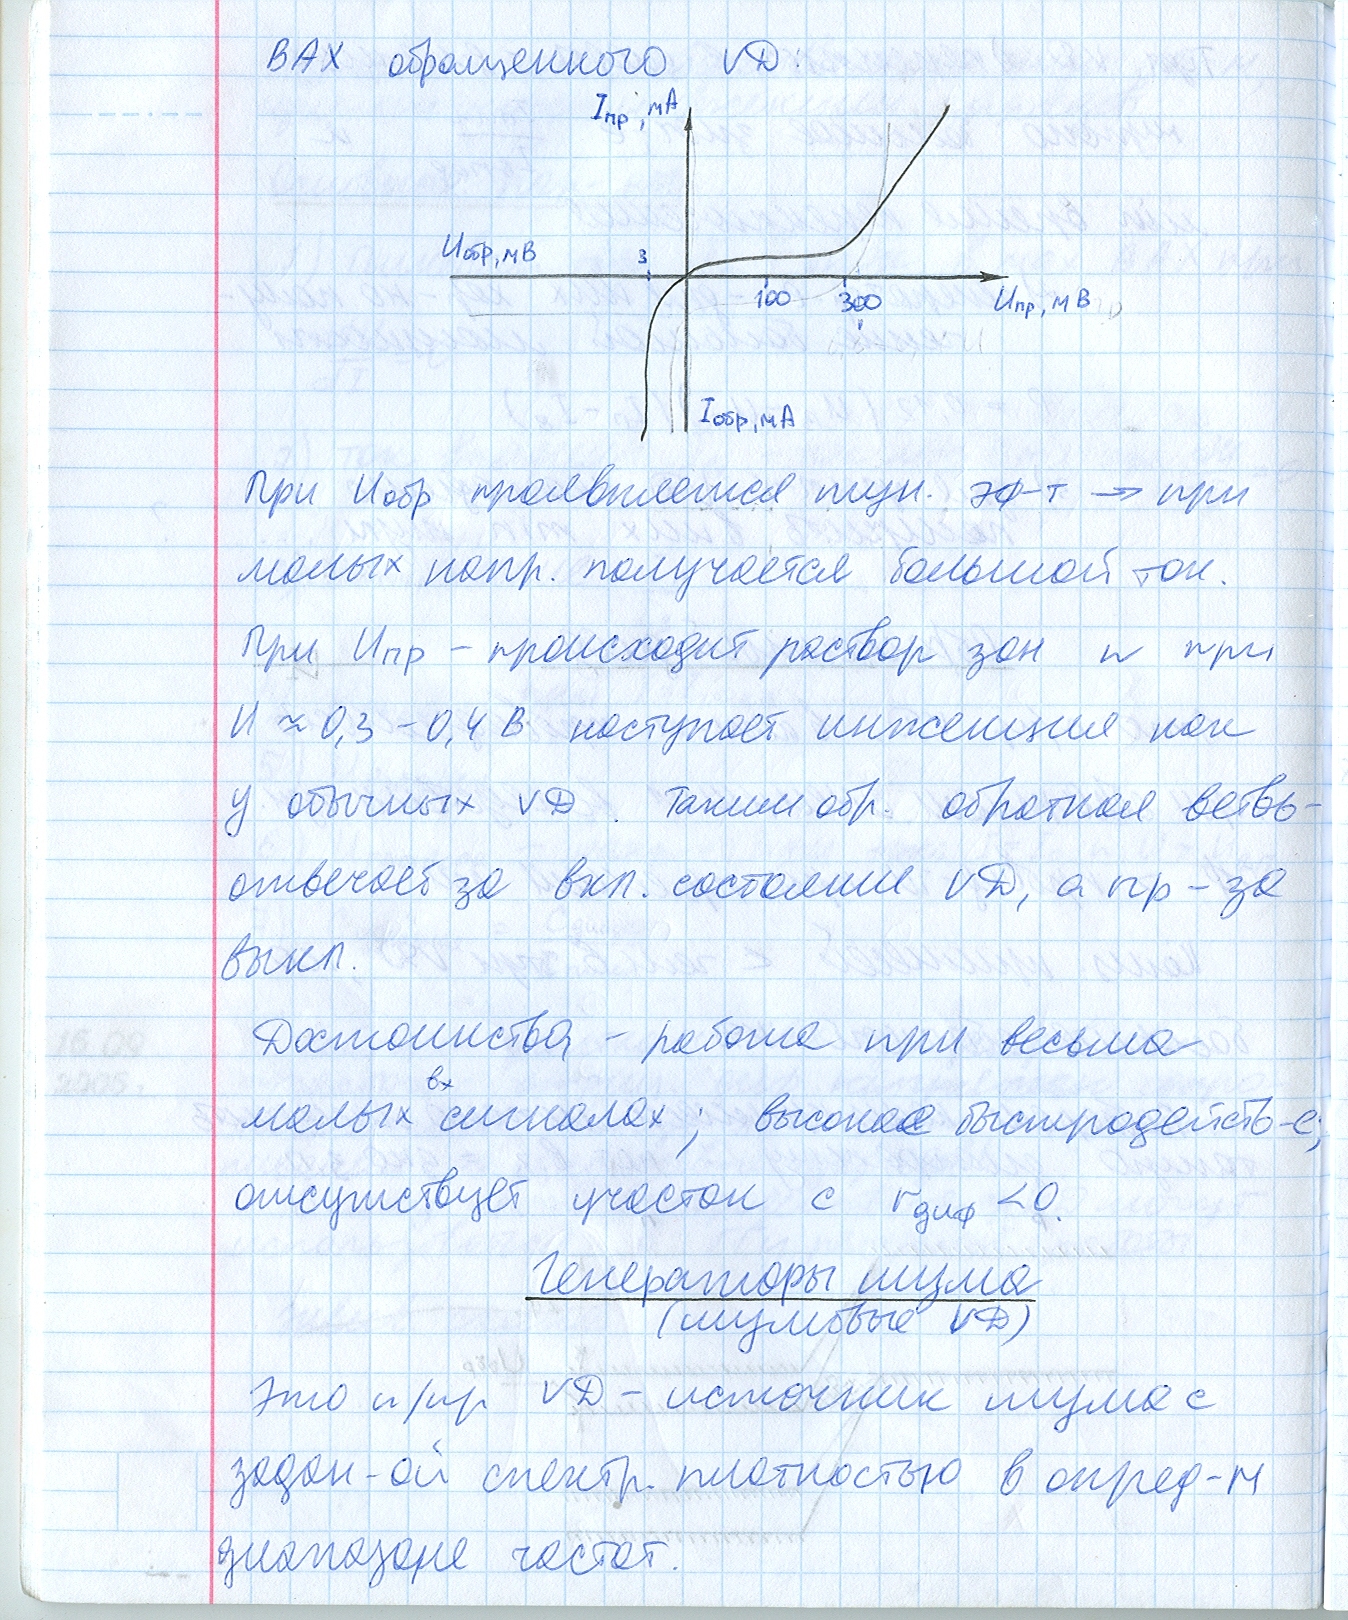 ВАХ обращенного VD:
Iпр, мА
Uобр, мВ
3
100
300
Uпр, мВ
Iобр, мА
При Uобр проявляется тун. эф-т → при
малых напр. получается большой ток.
При Uпр – происходит раствор зон и при
U ≈ 0,3 – 0,4 В наступает инжекция как
у обычных VD. Таким обр. обратная ветвь –
отвечает за вкл. состояние VD, а пр – за
выкл.
Достоинства – работа при весьма
малых вх сигналах; высокое быстродейств-е;
отсутствует участок с rдиф < 0.
Генераторы шума
(шумовые VD)
Это п/пр VD – источник шума с
задан-ой спектр. плотностью в опред-м
диапазоне частот.
16.09
2005.